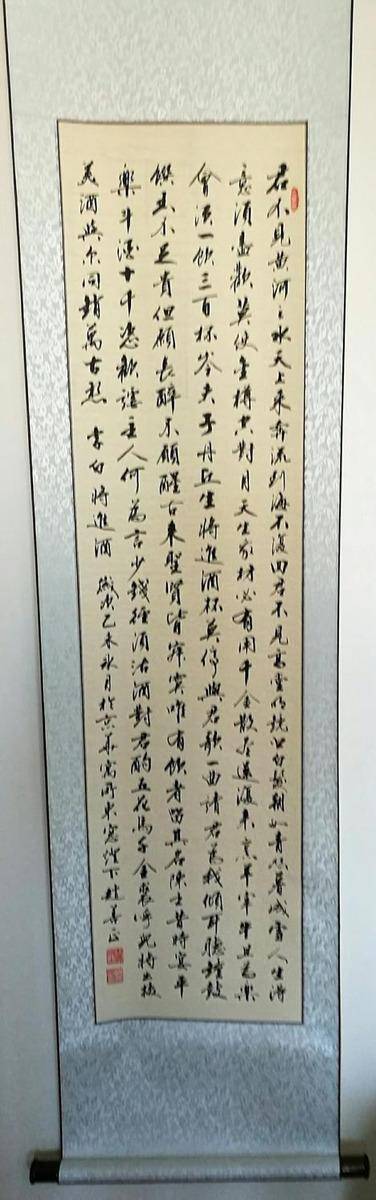 君不見黄河之水天上来奔流到海不復回君不見高堂明鏡悲白髮朝如青絲暮成雪人生得
意須盡歡莫使金樽空對月天生我材必有用千金散盡還復来烹羊宰牛且為樂
會須一飲三百杯岑夫子丹丘生將進酒杯莫停與君歌一曲請君為我傾耳聽鐘鼓
饌玉不足貴但願長醉不願醒古来聖賢皆寂寞唯有飲者留其名陳王昔時宴平
樂斗酒十千恣歡謔主人何為言少錢徑須沽酒對君酌五花馬千金裘呼兒將出換
美酒與爾同銷萬古愁 李白將進酒 歲次乙未 月於京華寓所東窓燈下